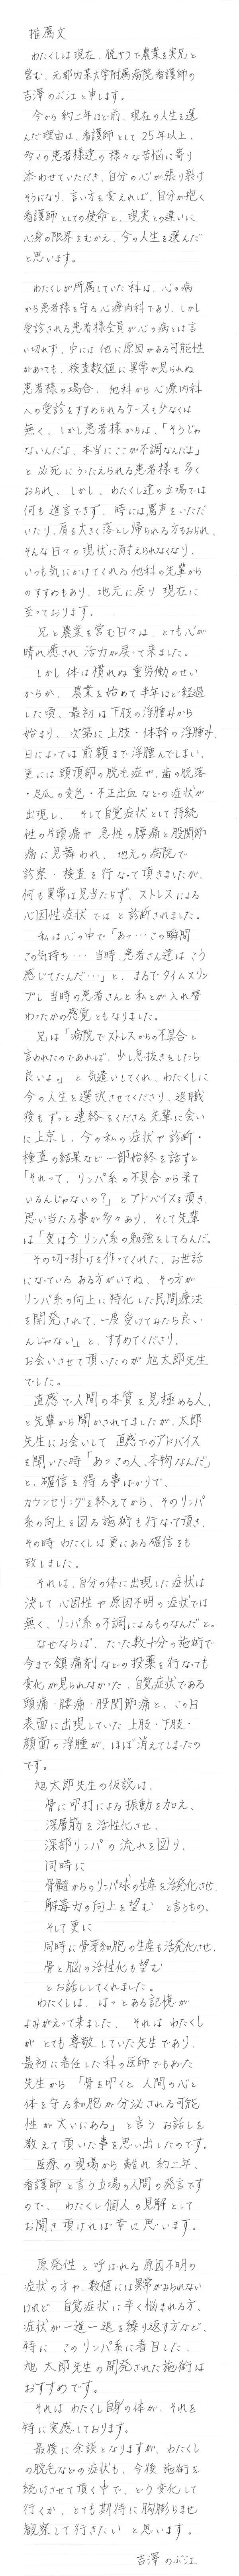 推薦文
わたくしは現在、脱サラで農業を実兄と
営む、元都内某大学附属病院看護師の
吉澤のぶ江と申します。
今から約二年ほど前、現在の人生を選
んだ理由は、看護師として25年以上、
多くの患者様達の様々な苦悩に寄り
添わせていただき、自分の心が張り裂け
そうになり、言い方を変えれば、自分が抱く
看護師としての使命と、現実との違いに
心身の限界をむかえ、今の人生を選んだ
と思います。
わたくしが所属していた科は、心の病
から患者様を守る心療内科であり、しかし
受診される患者様全員が心の病とは言
い切れず、中には他に原因がある可能性
があっても、検査数値に異常が見られぬ
患者様の場合、他科から心療内科
への受診をすすめられるケースも少なくは
無く、しかし患者様からは、「そうじゃ
ないんだよ、本当にここが不調なんだよ」
と必死にうったえられる患者様も多く
おられ、しかし、わたくし達の立場では
何も進言できず、時には罵声をいただ
いたり、肩を大きく落とし帰られる方もおられ、
そんな日々の現状に耐えられなくなり、
いつも気にかけてくれる他科の先輩から
のすすめもあり、地元に戻り現在に
至っております。
兄と農業を営む日々は、とても心が
晴れ癒され活力が戻って来ました。
しかし体は慣れぬ重労働のせい
からか、農業を始めて半年ほど経過
した頃、最初は下肢の浮腫みから
始まり、次第に上肢・体幹の浮腫み、
日によっては前額まで浮腫んでしまい、
更には頭頂部の脱毛症や、歯の脱落
・足爪の変色・不正出血などの症状が
出現し、そして自覚症状として持続
性の片頭痛や急性の腰痛と股関節
痛に見舞われ、地元の病院で
診察・検査を行なって頂きましたが、
何も異常は見当たらず、ストレスによる
心因性症状ではと診断されました。
私は心の中で「あっ…この瞬間
この気持ち…当時、患者さん達はこう
感じてたんだ…」と、まるでタイムスリッ
プし当時の患者さんと私とが入れ替
わったかの感覚ともなりました。
兄は「病院でストレスからの不具合と
言われたのであれば、少し息抜きをしたら
良いよ。」と気遣いしてくれ、わたくしに
今の人生を選択させてくださり、退職
後もずっと連絡をくださる先輩に会い
に上京し、今の私の症状や診断・
検査の結果など一部始終を話すと
「それって、リンパ系の不具合から来て
いるんじゃないの？」とアドバイスを頂き、
思い当たる事が多々あり、そして先輩
は「実は今リンパ系の勉強をしてるんだ。
その切っ掛けを作ってくれた、お世話
になっているある方がいてね、その方が
リンパ系の向上に特化した民間療法
を開発されて、一度受けてみたら良い
んじゃない」と、すすめてくださり、
お会いさせて頂いたのが旭太郎先生
でした。
直感で人間の本質を見極める人、
と先輩から聞かされてましたが、太郎
先生にお会いして直感でのアドバイス
を聞いた時「あっこの人、本物なんだ」
と、確信を得る事ばかりで、
カウンセリングを終えてから、そのリンパ
系の向上を図る施術も行なって頂き、
その時わたくしは更にある確信をも
致しました。
それは、自分の体に出現した症状は
決して心因性や原因不明の症状では
無く、リンパ系の不調によるものなんだと。
なぜならば、たった数十分の施術で
今まで鎮痛剤などの投薬を行なっても
変化が見られなかった、自覚症状である
頭痛・腰痛・股関節痛と、この日
表面に出現していた上肢・下肢・
顔面の浮腫が、ほぼ消えてしまったの
です。
旭太郎先生の仮説は、
骨に叩打による振動を加え、
深層筋を活性化させ、
深部リンパの流れを図り、
同時に
骨髄からのリンパ球の生産を活発化させ、
解毒力の向上を望むと言うもの。
そして更に
同時に骨芽細胞の生産も活発化させ、
骨と脳の活性化も望む
とお話ししてくれました。
わたくしは、はっとある記憶が
よみがえって来ました、それはわたくし
がとても尊敬していた先生であり、
最初に着任した科の医師でもあった
先生から「骨を叩くと人間の心と
体を守る細胞が分泌される可能
性が大いにある」と言うお話しを
教えて頂いた事を思い出したのです。
医療の現場から離れ約二年、
看護師と言う立場の人間の発言です
ので、わたくし個人の見解として
お聞き頂ければ幸に思います。
原発性と呼ばれる原因不明の
症状の方や、数値には異常がみられない
けれど自覚症状に辛く悩まれる方、
症状が一進一退を繰り返す方など、
特にこのリンパ系に着目した、
旭太郎先生の開発された施術は
おすすめです。
それはわたくし自身の体が、それを
特に実感しております。
最後に余談となりますが、わたくし
の脱毛などの症状も、今後施術を
続けさせて頂く中で、どう変化して
行くか、とても期待に胸膨らませ
観察して行きたいと思います。
吉澤のぶ江